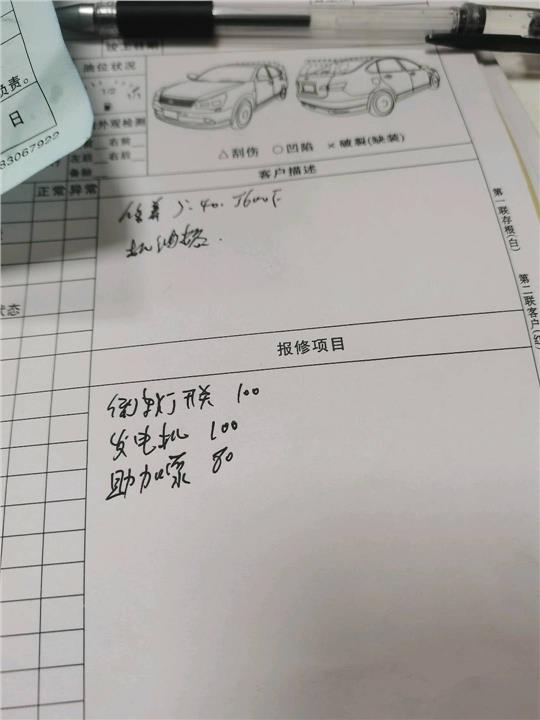 负责。
日
83067922
接车日期
油位状况
1/2
外观检测
右前
左后 右后
备胎
△刮伤 ○凹陷 ×破裂(缺装)
正常 异常
客户描述
5-40.
机油格.
状态
报修项目
倒车灯开关 100
发电机 100
助力泵 80
第一联存根(白)
第二联客户(红)